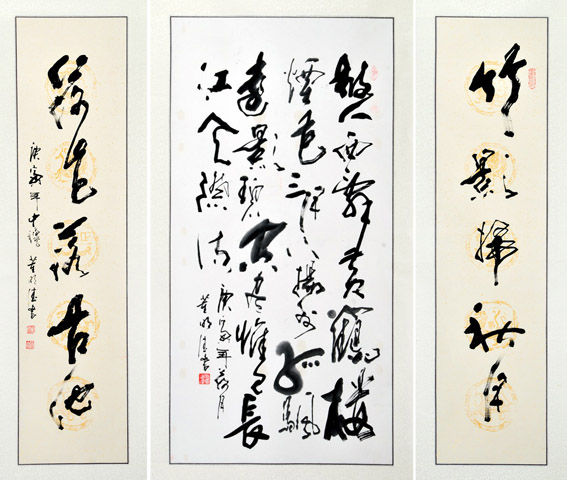 竹影掃秋月
故人西辭黃鶴樓
煙花三月下揚州孤帆
遠影碧空盡惟見長
江天際流
庚寅年荷月
荷花落古池
庚寅年中